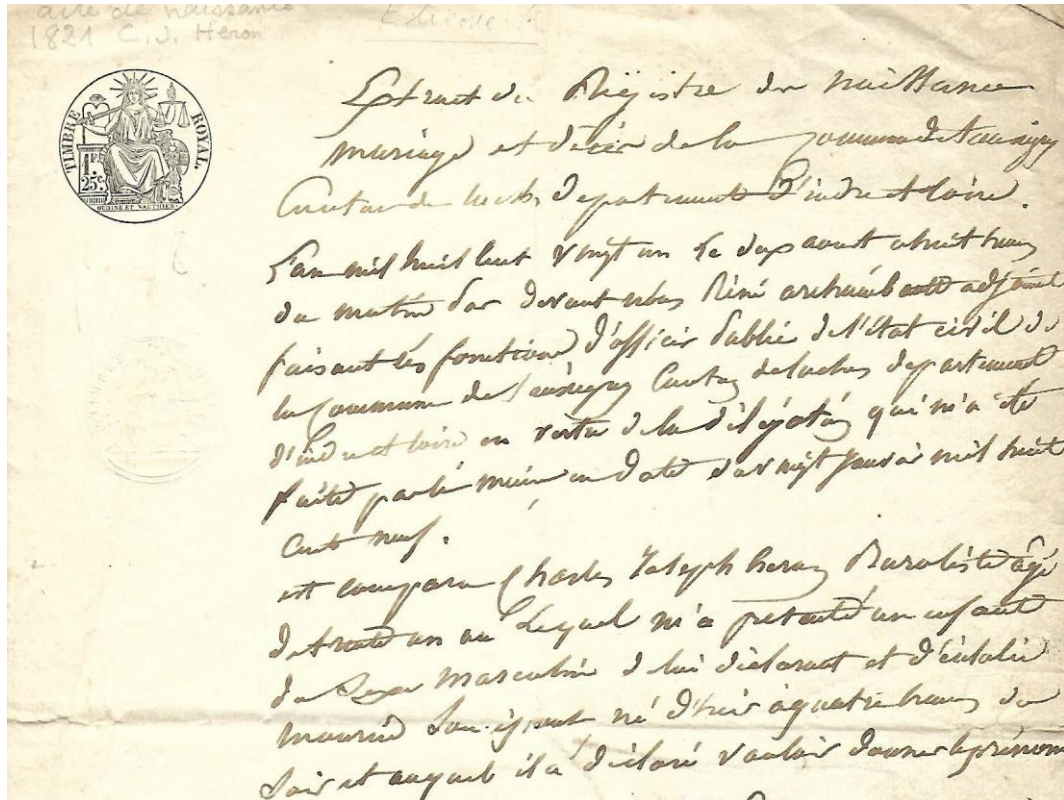 acte de naissance
1821 C. J. Heron
TIMBRE ROYAL
1F.
25c.
Extrait du Régistre de naissance
mariage et décès de la Commune de Tauxigny
Canton de loches departement d'indre et loire.
L'an mil huit cent vingt un le dix aout a huit heures
du matin par devant nous Réné archambault adjoint
faisant les fonctions d'officier public de l'état civil de
la Commune de Tauxigny Canton de loches departement
d'indre et loire en vertu de la délégation qui m'a été
faite par le maire en date du vingt janvier mil huit
cent neuf.
est comparu Charles Joseph heron Buraliste âgé
de trente un an lequel m'a présenté un enfant
du Sexe masculin de lui déclarant et d'eulalie
son épouse né d'hier à quatre heures du
Soir et auquel il a déclaré vouloir donner le prénom